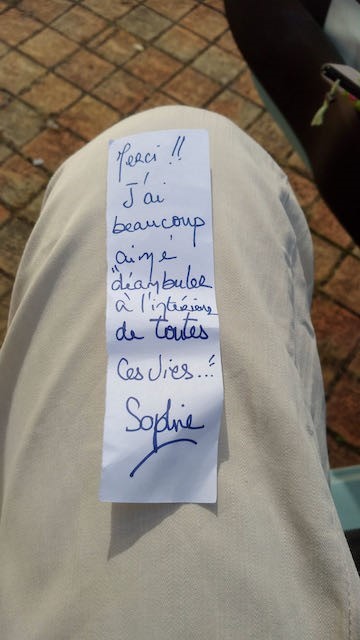 Merci !!
J'ai
beaucoup
aimé
"déambuler
à l'intérieur
de toutes
ces vies..."
Sophie